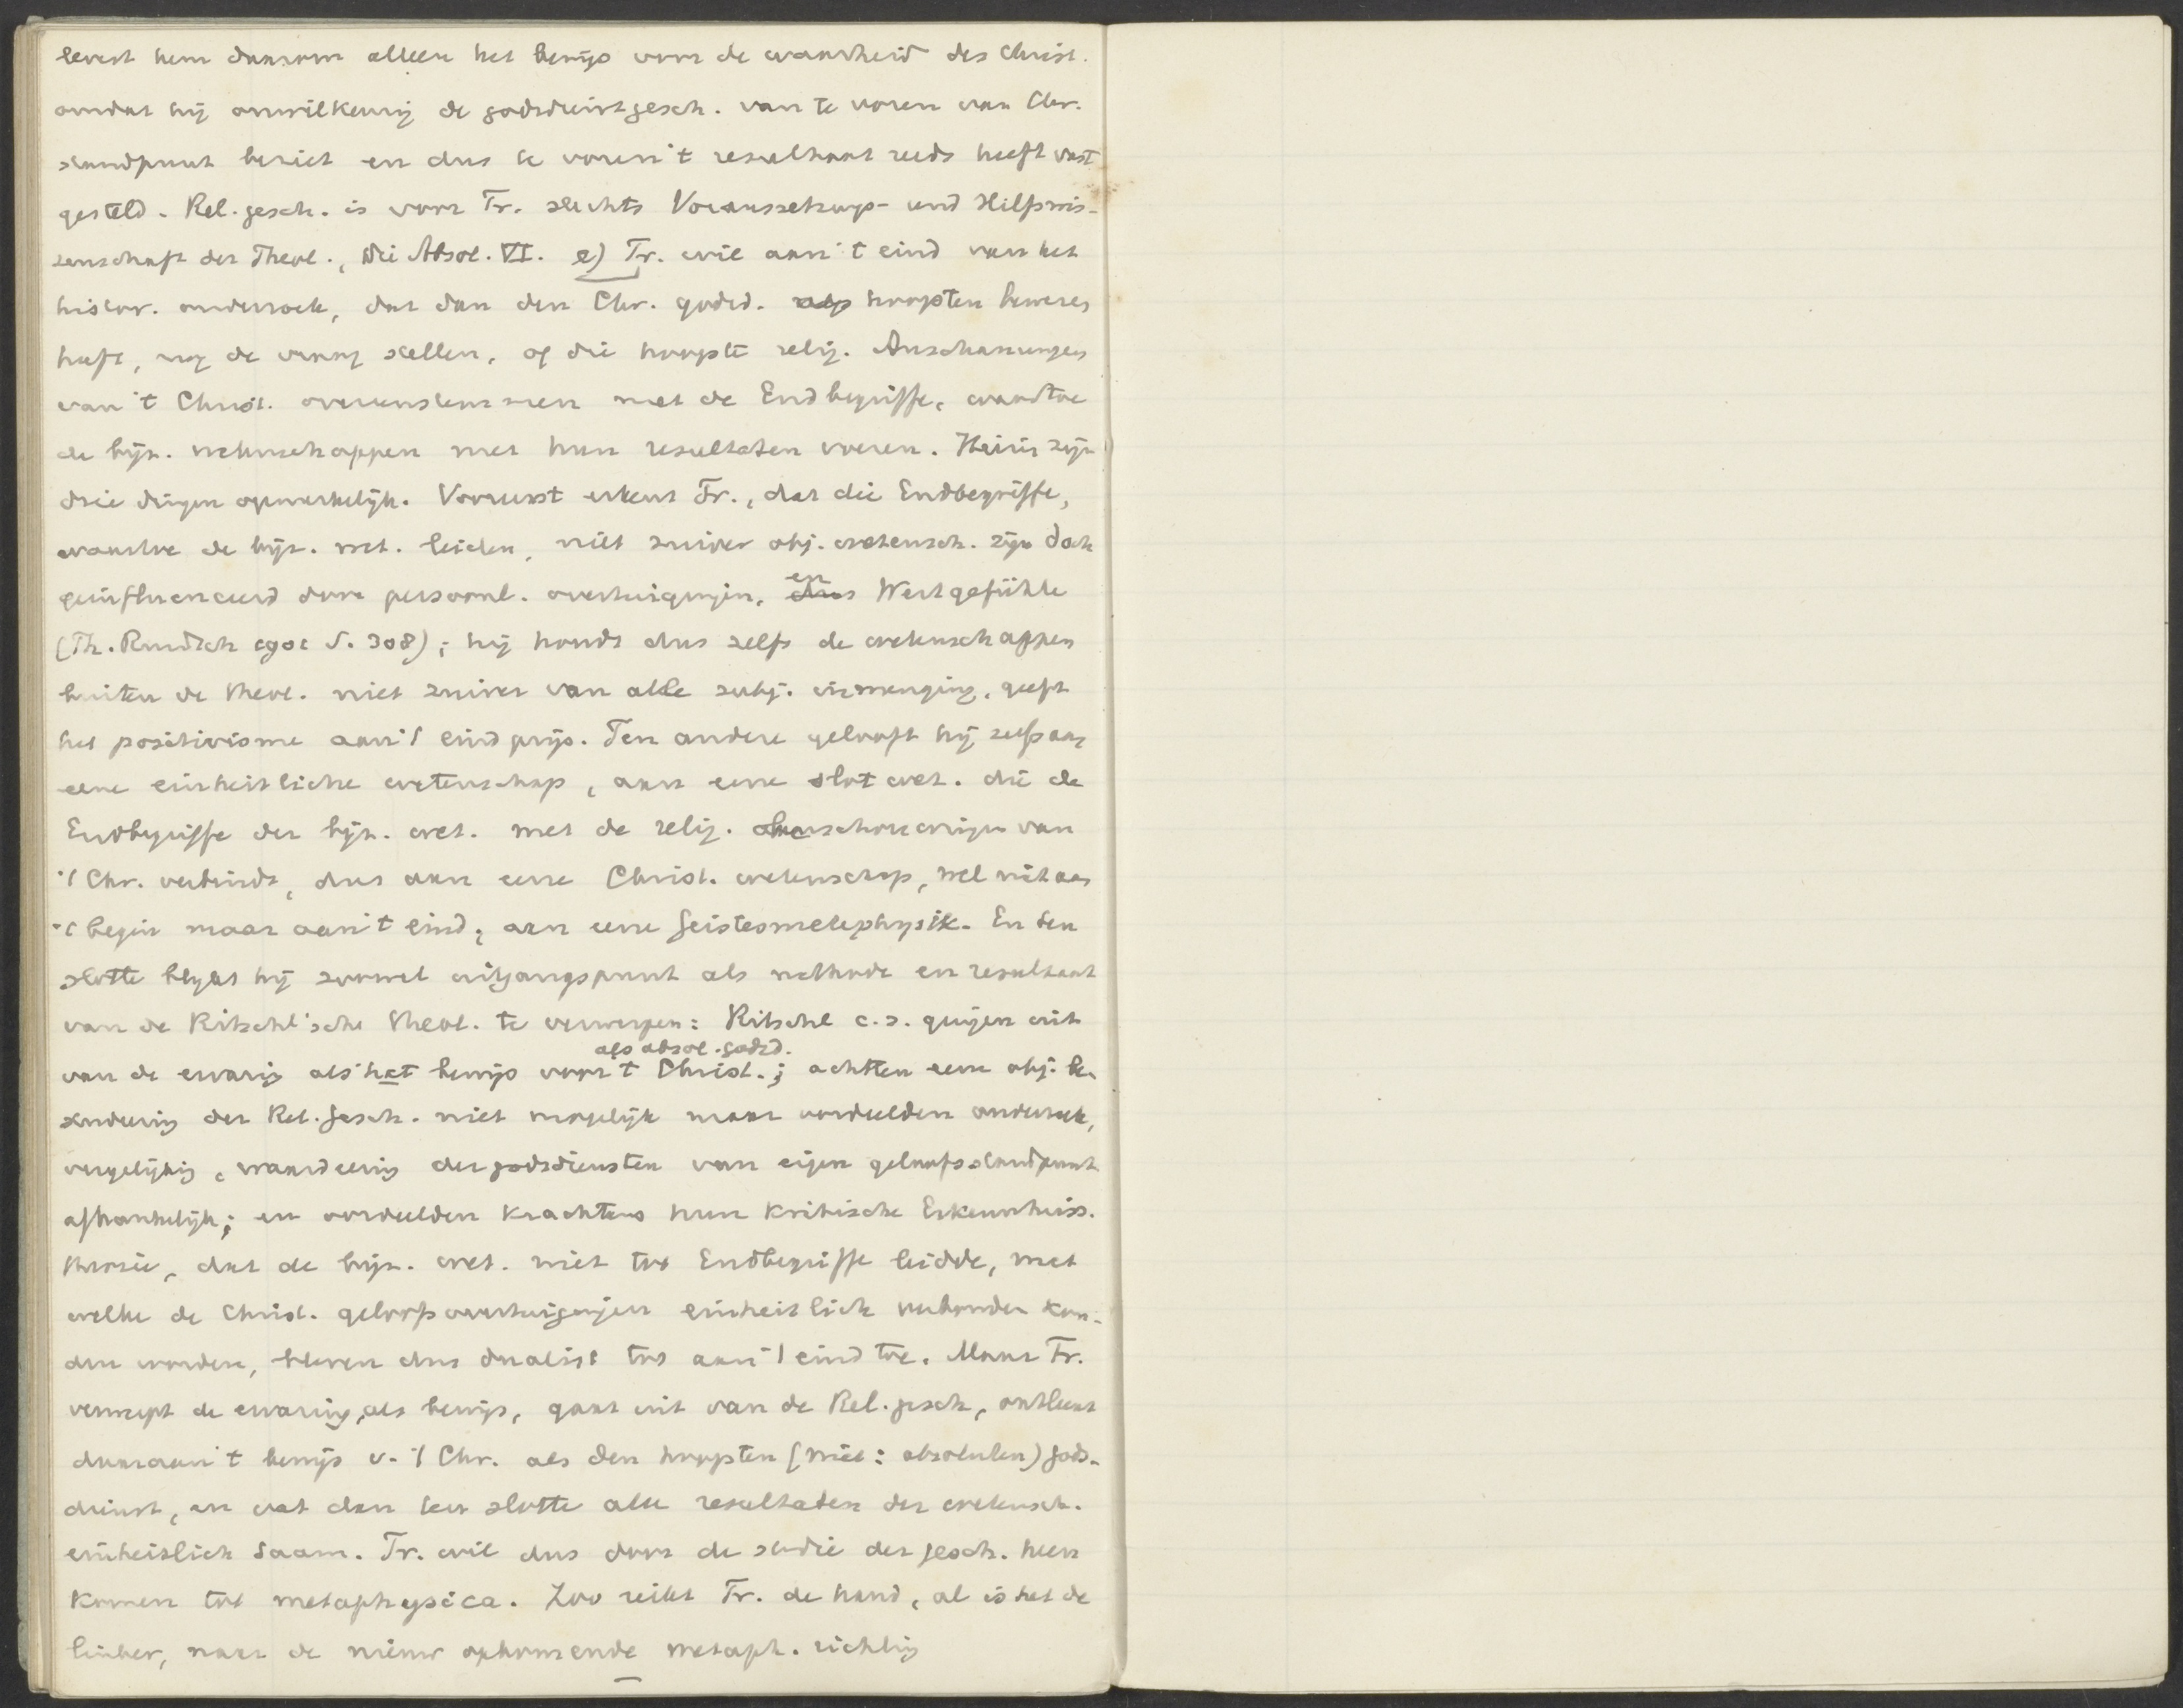 levert hem daarom alleen het bewijs voor de waarheid des Christ.
omdat hij onwilkeurig de godsdienstgesch. van te voren van Chr.
standpunt beziet en dus te voren 't resultaat reeds heeft vast
gesteld. Rel. gesch. is voor Tr. slechts Voraussetzungs- und Hilfswis-
senschaft der Theol., Die Absol. VI. e) Tr. wil aan 't eind van het
histor. onderzoek, dat dan den Chr. godsd. als hoogsten bewezen
heeft, nog de vraag stellen, of die hoogste relig. Anschauungen
van 't Christ. overeenstemmen met de Endbegriffe, waartoe
de bijz. wetenschappen met hun resultaten voeren. Hierin zijn
drie dingen opmerkelijk. Vooreerst erkent Tr., dat die Endbegriffe,
waartoe de bijz. wet. leiden, niet zuiver obj. wetensch. zijn doch
geinfluenceerd door persoonl. overtuigingen, en dus Wertgefühle
(Th. Rundsch 1901 S. 308); hij houdt dus zelfs de wetenschappen
buiten de Theol. niet zuiver van alle subj. inmenging, geeft
het positivisme aan 't eind prijs. Ten andere gelooft hij zelf aan
eene einheitliche wetenschap, aan eene slotwet. die de
Endbegriffe der bijz. wet. met de relig. Anschouwingen van
't Chr. verbindt, dus aan eene Christ. wetenschap, wel niet aan
't begin maar aan 't eind, aan eene Geistesmetaphysik. En ten
slotte blijkt hij zoowel uitgangspunt als methode en resultaat
van de Ritschl'sche Theol. te verwerpen: Ritschl c.s. gingen uit
als absol. godsd.
van de ervaring als het bewijs voor 't Christ.; achtten eene obj. be-
studeering der Rel. gesch. niet mogelijk maar oordeelden onderzoek,
vergelijking, waardeering der godsdiensten van eigen geloofsstandpunt
afhankelijk; en oordeelden krachtens hun kritische Erkenntniss-
theorie, dat de bijz. wet. niet tot Endbegriffe leidde, met
welke de Christ. geloofsovertuigingen einheitlich verbonden kon-
den worden, bleven dus dualist tot aan 't eind toe. Maar Tr.
verwerpt de ervaring als bewijs, gaat uit van de Rel. gesch., ontleent
daaraan 't bewijs v. 't Chr. als den hoogsten (niet: absoluten) gods-
dienst, en vat dan ten slotte alle resultaten der wetensch.
einheitlich saam. Tr. wil dus door de studie der gesch. heen
komen tot metaphysica. Zoo reikt Tr. de hand, al is het de
linker, naar de nieuw opkomende metaph. richting